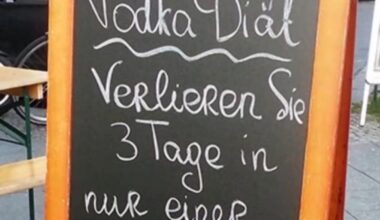 Vodka Diät
Verlieren Sie
3 Tage in
nur einer